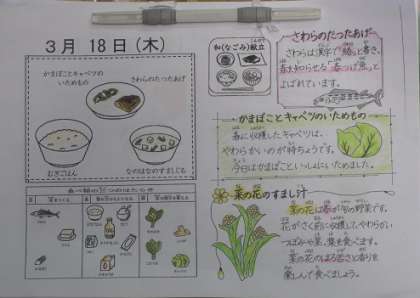 3月 18日(木)
かまぼことキャベツの
いためもの
さわらのたつたあげ
むぎごはん
なのはなのすましじる
和(なごみ)献立
さわらのたつたあげ
さわらは漢字で「鰆」と書き、
春を知らせる「春つげ魚」と
よばれています。
かまぼことキャベツのいためもの
春に収穫したキャベツは、
やわらかいのが特ちょうです。
今日はかまぼこといっしょにいためました。
菜の花のすまし汁
菜の花は春が旬の野菜です。
花がさく前に収穫して、やわらかい
つぼみや葉、茎を食べます。
菜の花のほろ苦さと香りを
楽しんで食べましょう。